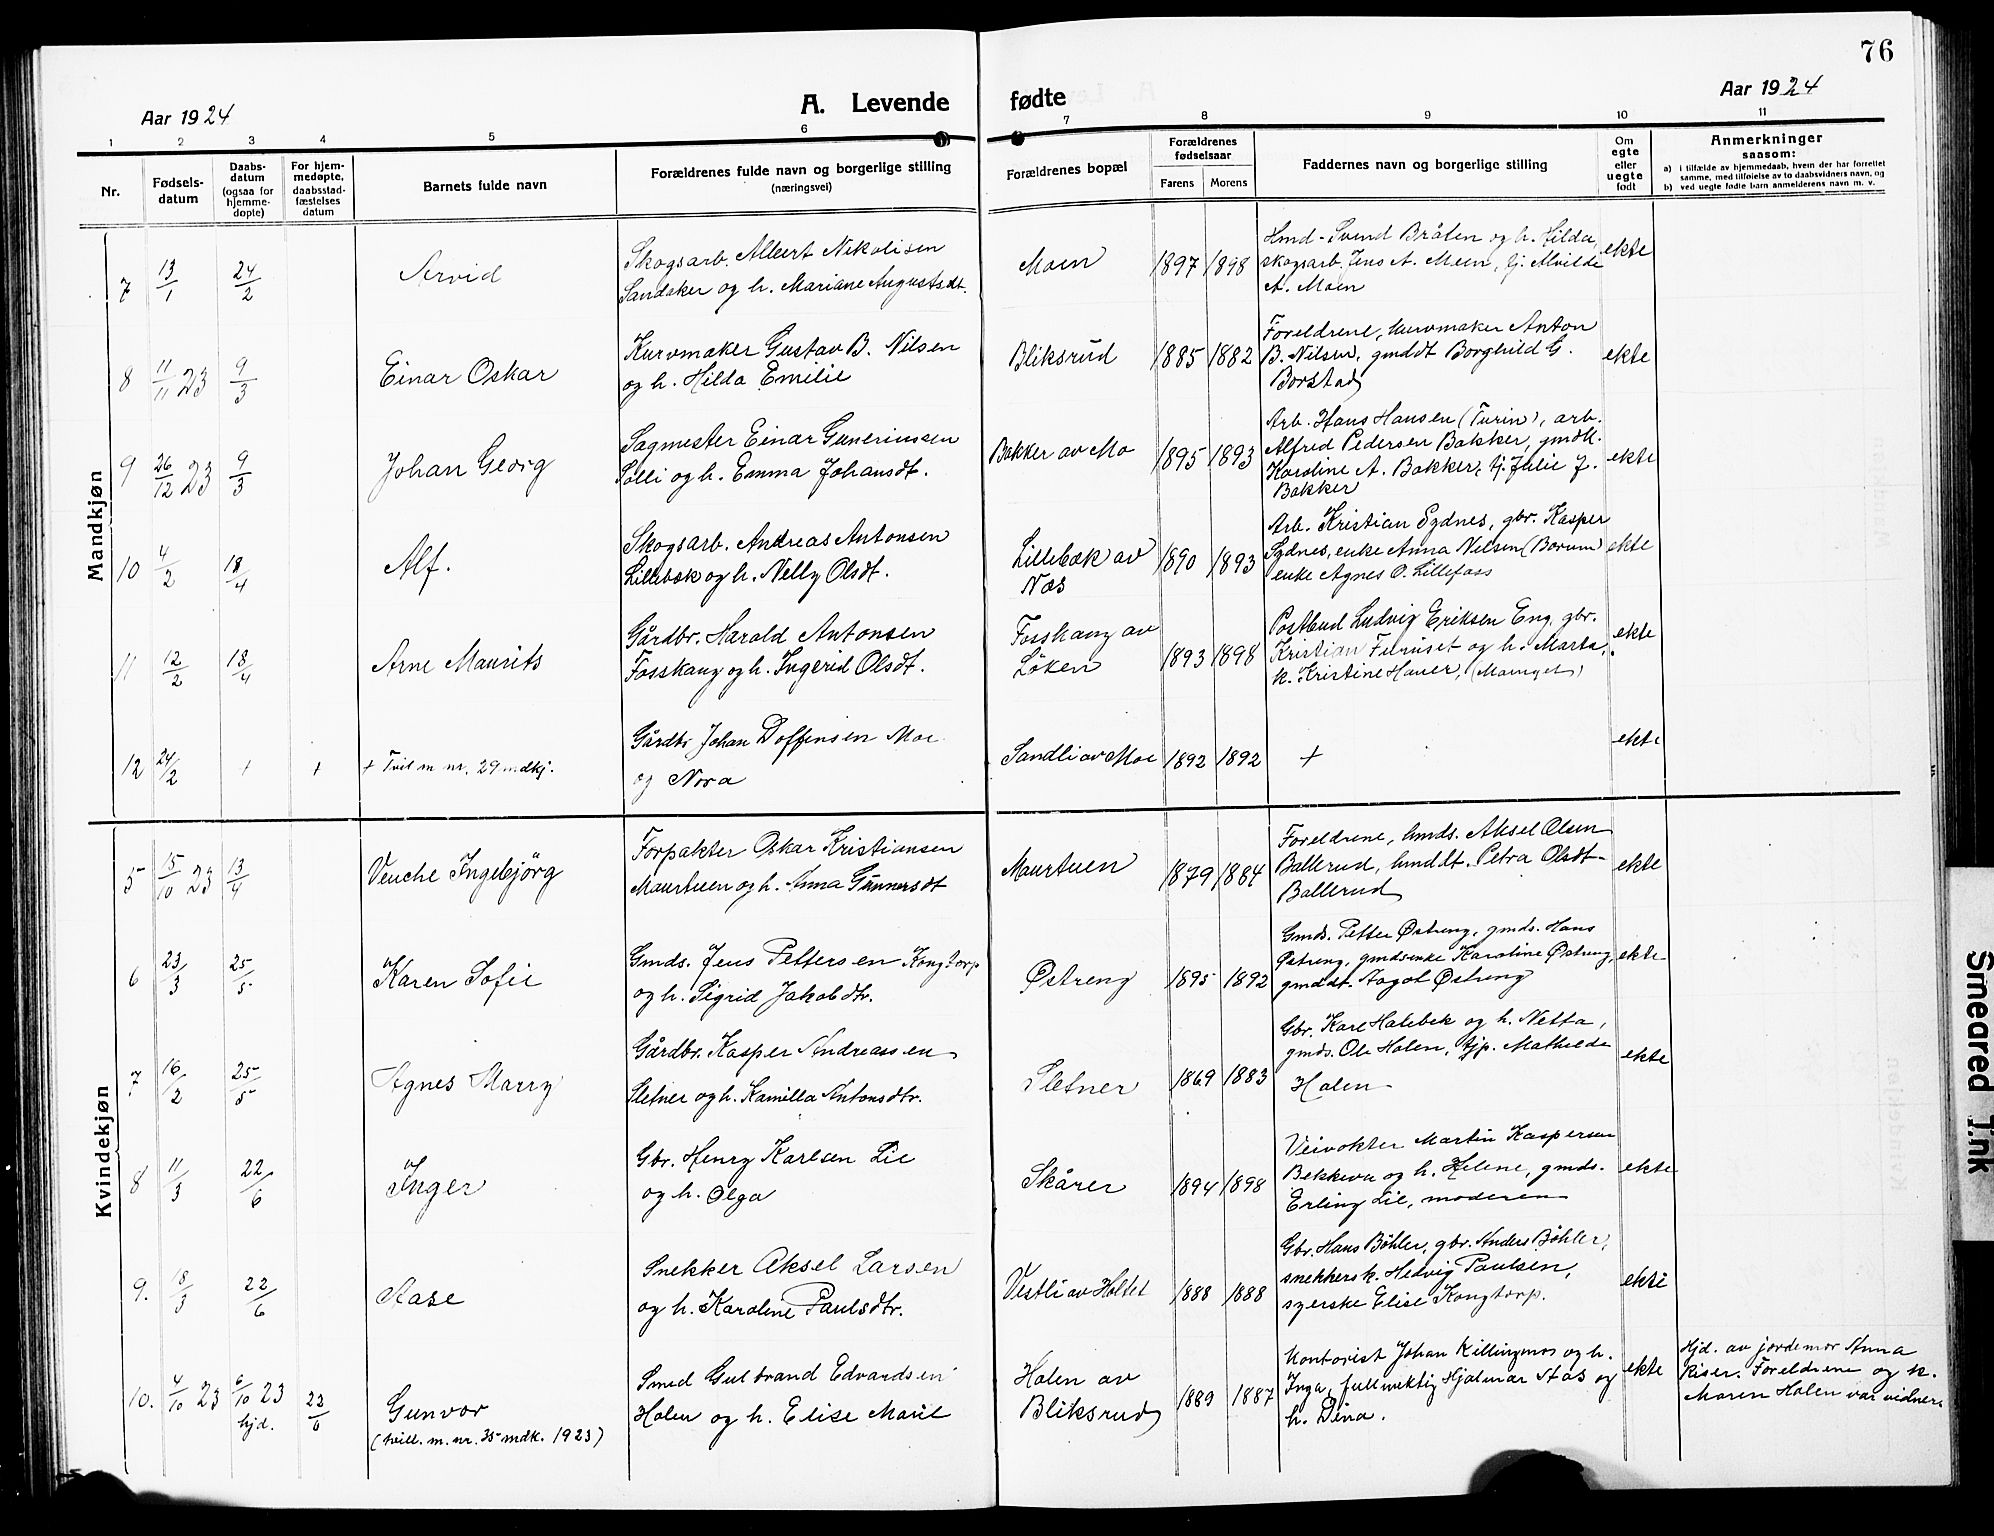 76
Aar 1924
A. Levende fødte
Aar 1924
1 2 3 4 5 6 7 8 9 10 11
Nr.
Fødsels-
datum
Daabs-
datum
(ogsaa for
hjemme-
døpte)
For hjem-
medøpte,
daabsstad-
fæstelses
datum
Barnets fulde navn
Forældrenes fulde navn og borgerlige stilling
(næringsvei)
Forældrenes bopæl
Forældrenes
fødselsaar
Farens Morens
Faddernes navn og borgerlige stilling
Om
egte
eller
uegte
født
Anmerkninger
saasom:
a) i tilfælde av hjemmedaab, hvem der har forrettet
samme, med tilføielse av to daabsvidners navn, og
b) ved uegte fødte barn anmelderens navn m. v.
Mandkjøn
7 13/1 24/2 Arvid
Skogsarb. Albert Nikolisen
Sandaker og h. Mariane Augustsdt.
Moen 1897 1898
Hmd. Svend Bråten og h. Hilda,
skogsarb. Jens A. Moen, tj. Alvilde
A. Moen
ekte
8 11/11 23 9/3 Einar Oskar
Kurvmaker Gustav B. Nilsen
og h. Hilda Emilie
Bliksrud 1885 1882
Foreldrene, kurvmaker Anton
B. Nilsen, gmddt Borghild G.
Borstad
ekte
9 26/12 23 9/3 Johan Georg
Sagmester Einar Guneriussen
Solli og h. Emma Johansdt.
Bakker av Mo 1895 1893
Arb. Hans Hansen (Turin), arb.
Alfred Pedersen Bakker, gmdk.
Karoline A. Bakker, tj. Julie J.
Bakker
ekte
10 4/2 18/4 Alf.
Skogsarb. Andreas Antonsen
Lillebæk og h. Nelly Olsdt.
Lillebæk av
Næs
1890 1893
Arb. Kristian Sydnes, gbr. Kasper
Sydnes, enke Anna Nilsen (Borum)
enke Agnes O. Lillefoss
ekte
11 12/2 18/4 Arne Maurits
Gårdbr. Harald Antonsen
Fosskaug og h. Ingerid Olsdt.
Fosskaug av
Løken
1893 1898
Postbud Ludvig Eriksen Eng, gbr.
Kristian Furuset og h. Marta,
k. Kristine Hauer,
ekte
12 24/2 + + + Tvil m nr. 29 mdkj.
Gårdbr Johan Doffensen Moe
og Nora
Sandli av Moe 1892 1892 + ekte
Kvindekjøn
5 15/10 23 13/4 Venche Ingebjörg
Forpakter Oskar Kristiansen
Maurtuen og h. Anna Gunnersdt
Maurtuen 1879 1884
Foreldrene, hmds. Aksel Olsen
Ballerud, hmddt. Petra Olsdt-
Ballerud
ekte
6 23/3 25/5 Karen Sofie
Gmds. Jens Pettersen Kongtorp
og h. Sigrid Jakobdtr.
Østreng 1895 1892
Gmds. Petter Østreng, gmds. Hans
Østreng, gmdsenke Karoline Østreng,
gmddt. Aagot Østreng
ekte
7 16/2 25/5 Agnes Marry
Gårdbr. Kasper Andreassen
Sletner og h. Kamilla Antonsdtr.
Sletner 1869 1883
Gbr. Karl Holebek og h. Netta,
gmds. Ole Holen, tjp. Mathilde
Holen
ekte
8 11/3 22/6 Inger
Gbr. Henry Karlsen Lie
og h. Olga
Skårer 1894 1898
Veivokter Martin Kaspersen
Bekkevu og h. Helene, gmds.
Erling Lie, moderen
ekte
9. 18/3 22/6 Aase
Snekker Aksel Larsen
og h. Karoline Paulsdtr.
Vestli av Holtet 1888 1888
Gbr. Hans Böhler, gbr. Anders Böhler,
snekkersk. Hedvig Paulsen,
syerske Elise Kongtorp.
ekte
10. 4/10 23 6/10 23
hjd.
22/6
Gunvor
(tvill. m. nr. 35 mdk. 1923)
Smed Gulbrand Edvardsen
Holen og h. Elise Marie
Holen av
Bliksrud
1889 1887
Kontorist Johan Killingmos og h.
Inga, fullmektig Hjalmar Stås og
h. Dina.
ekte
Hjd. av jordemor Anna
Riser. Foreldrene og k.
Maren Holen var vidner.
Smeared Ink